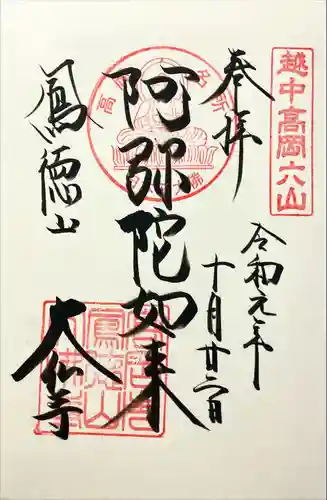 越中高岡六山
奉拝
令和元年
十月廿二日
阿弥陀如来
鳳徳山
大仏寺